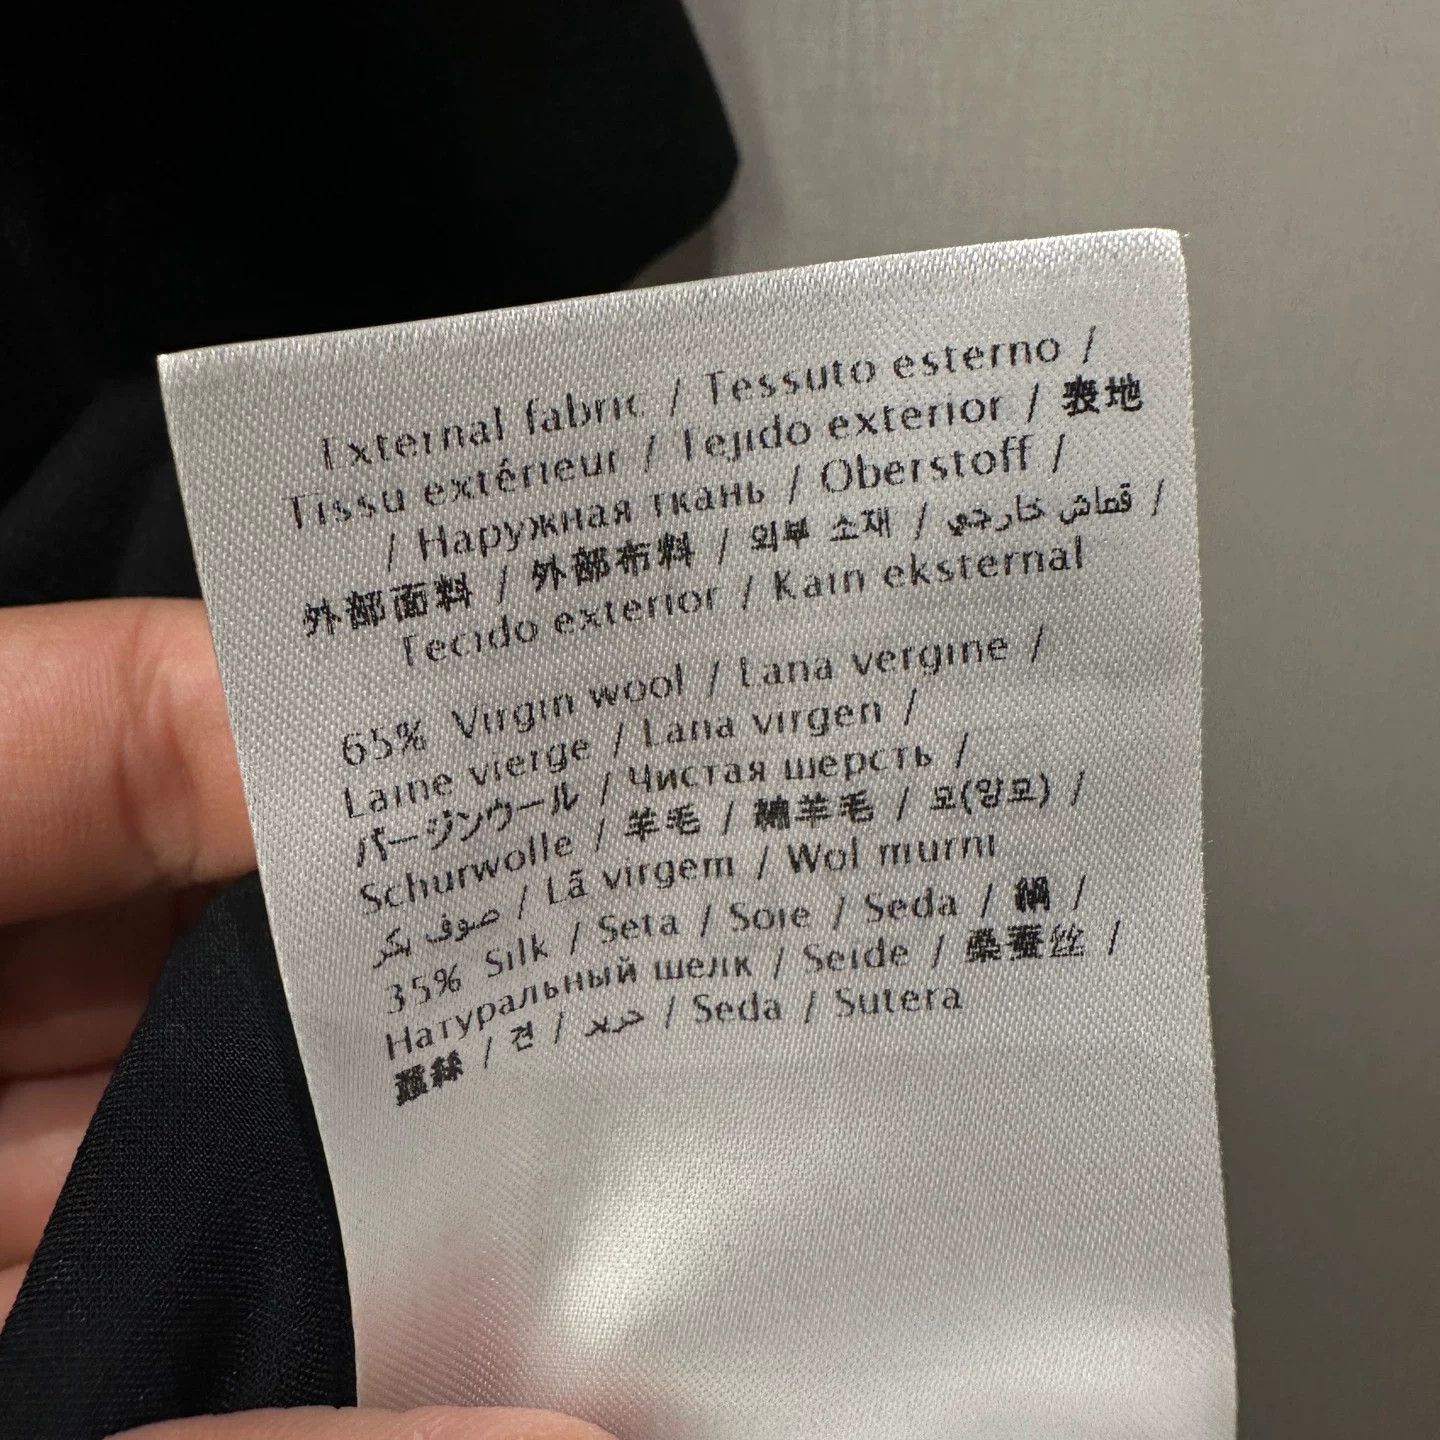 External fabric / Tessuto esterno /
Tissu extérieur / Tejido exterior / 表地
/ Наружная ткань / Oberstoff /
外部面料 / 外部布料 / 외부 소재 / قماش خارجي /
Tecido exterior / Kain eksternal
65% Virgin wool / Lana vergine /
Laine vierge / Lana virgen /
バージンウール / Чистая шерсть /
Schurwolle / 羊毛 / 綿羊毛 / 모(양모) /
صوف بكر / Lã virgem / Wol murni
35% Silk / Seta / Soie / Seda / 絹 /
Натуральный шелк / Seide / 桑蚕丝 /
蠶絲 / 견 / حرير / Seda / Sutera